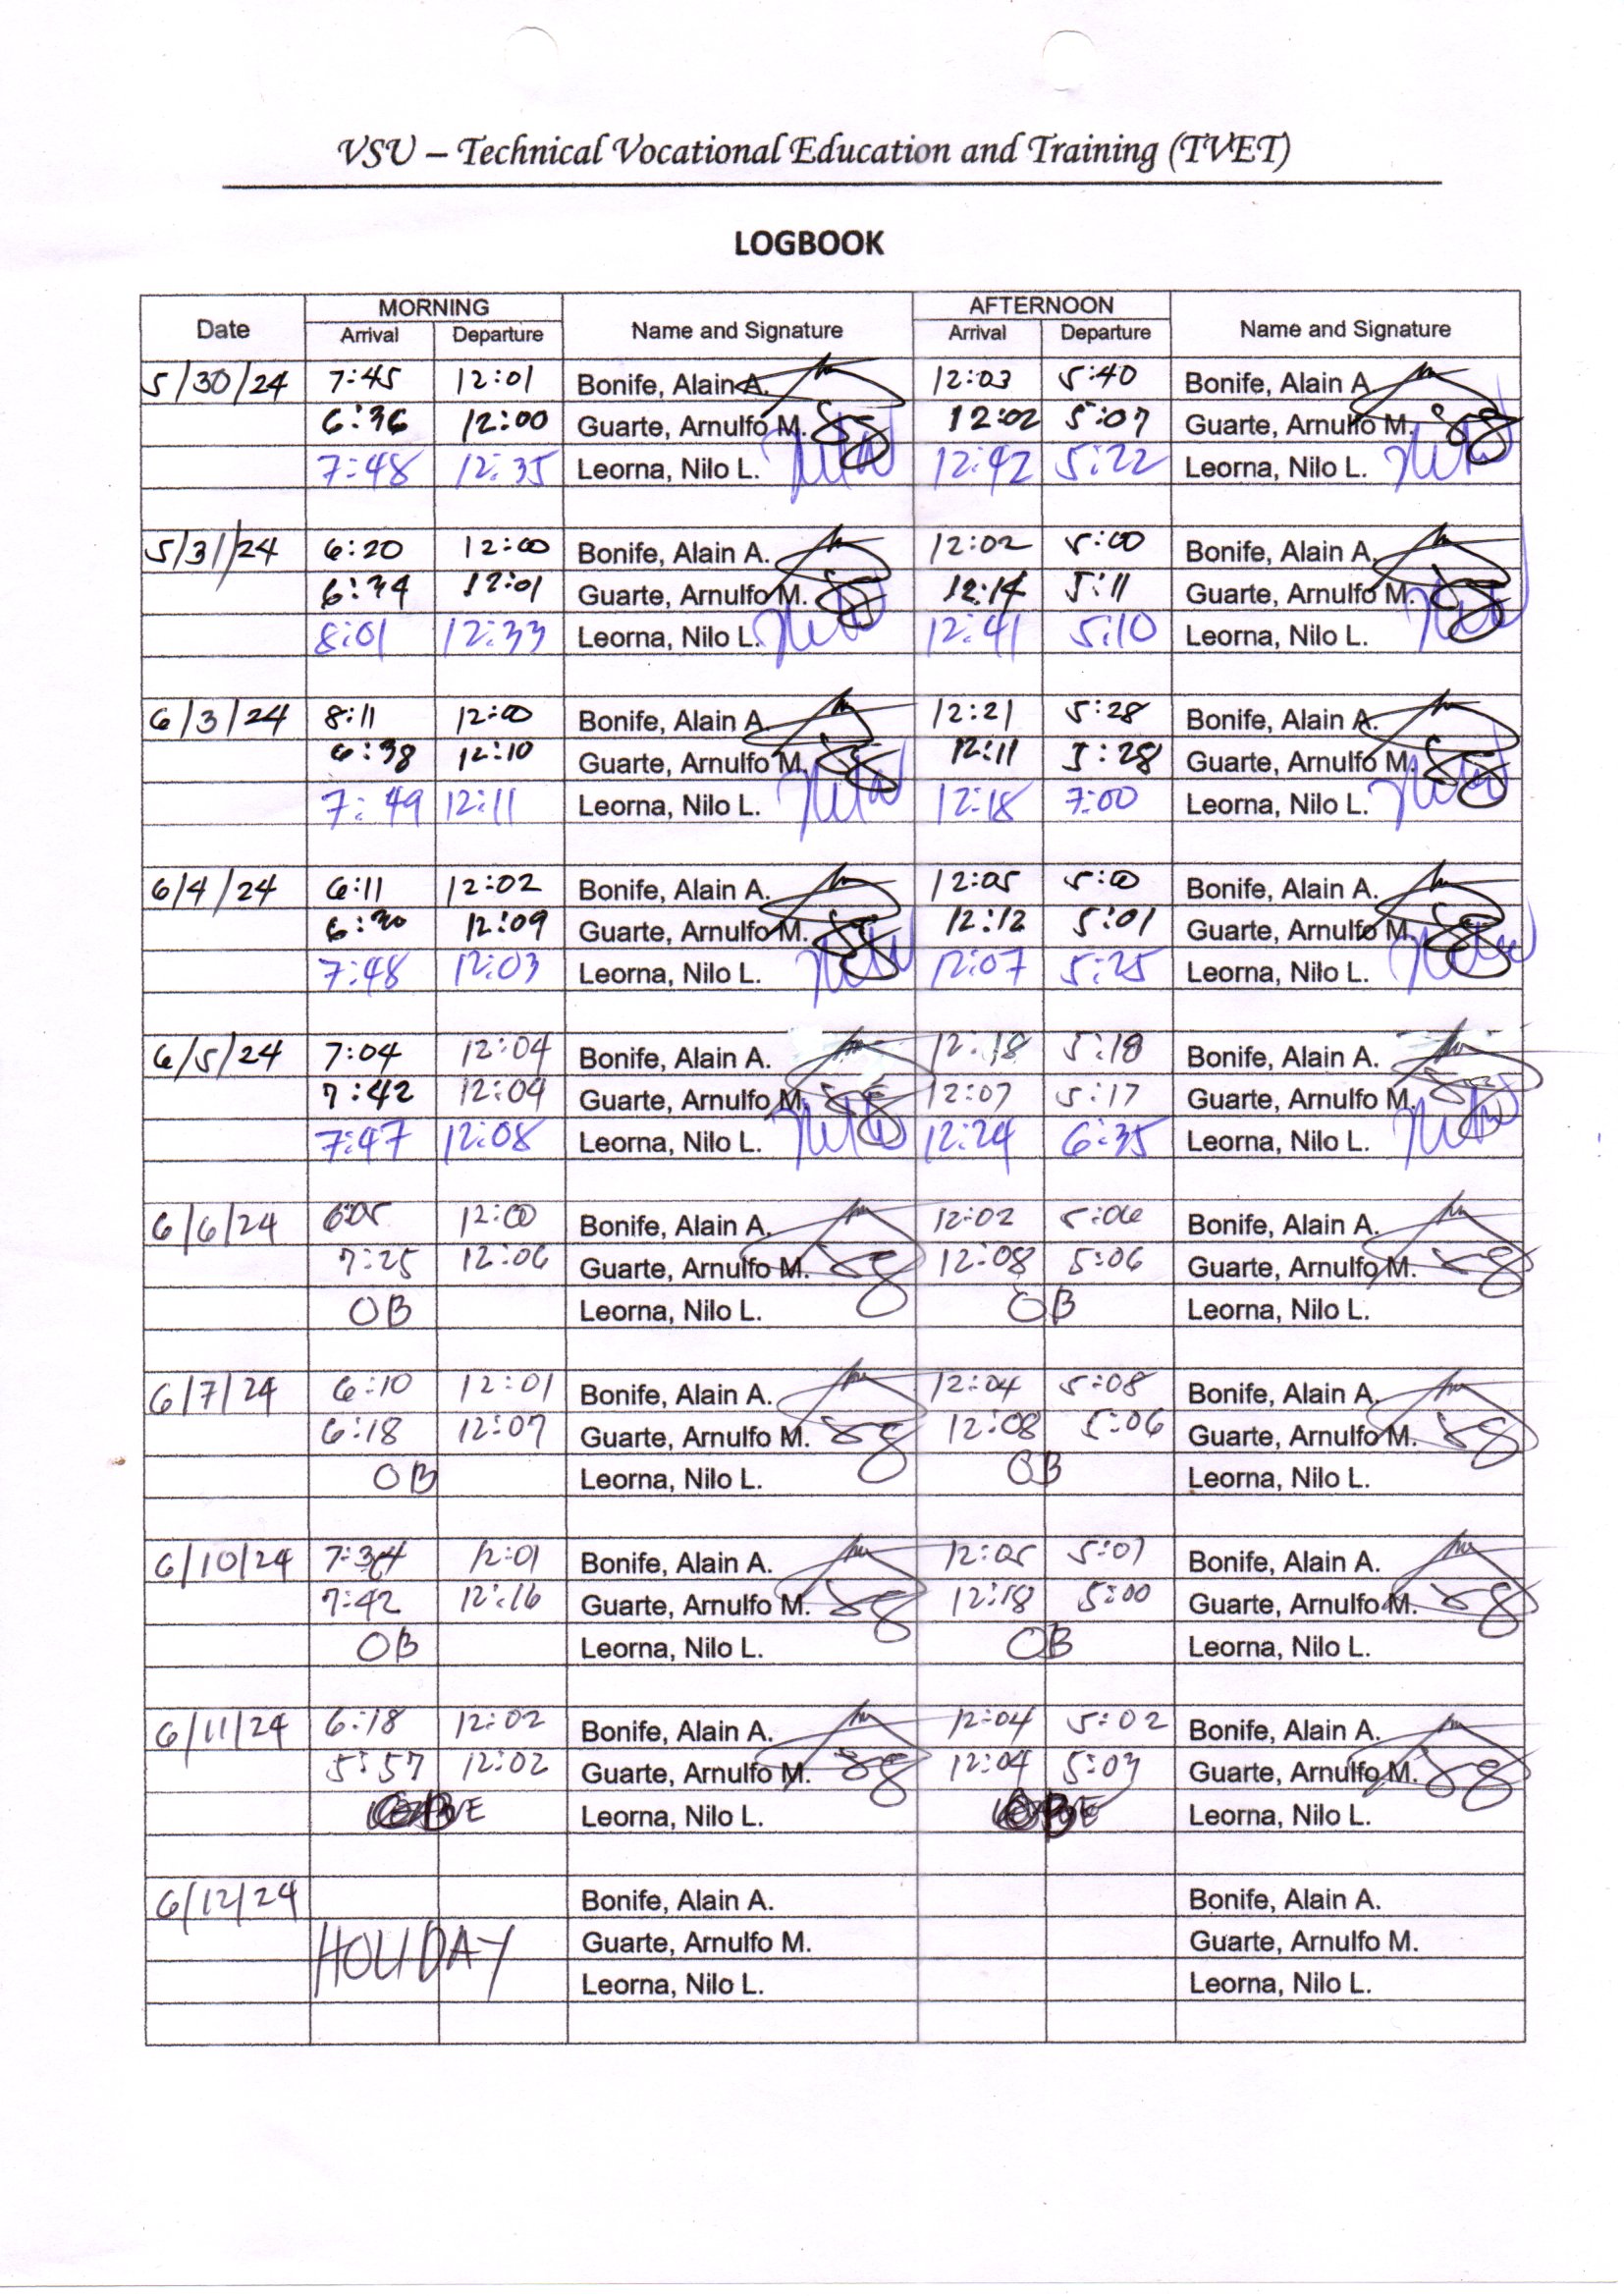 VSU – Technical Vocational Education and Training (TVET)
LOGBOOK
Date MORNING Name and Signature AFTERNOON Name and Signature
Arrival Departure Arrival Departure
5/30/24 7:45 12:01 Bonife, Alain A. 12:03 5:40 Bonife, Alain A.
6:36 12:00 Guarte, Arnulfo M. 12:02 5:07 Guarte, Arnulfo M.
7:48 12:35 Leorna, Nilo L. 12:42 5:22 Leorna, Nilo L.
5/31/24 6:20 12:00 Bonife, Alain A. 12:02 5:00 Bonife, Alain A.
6:34 12:01 Guarte, Arnulfo M. 12:14 5:11 Guarte, Arnulfo M.
8:01 12:33 Leorna, Nilo L. 12:41 5:10 Leorna, Nilo L.
6/3/24 8:11 12:00 Bonife, Alain A. 12:21 5:28 Bonife, Alain A.
6:38 12:10 Guarte, Arnulfo M. 12:11 5:28 Guarte, Arnulfo M.
7:49 12:11 Leorna, Nilo L. 12:18 7:00 Leorna, Nilo L.
6/4/24 6:11 12:02 Bonife, Alain A. 12:05 5:00 Bonife, Alain A.
12:09 Guarte, Arnulfo M. 12:12 5:01 Guarte, Arnulfo M.
7:48 12:03 Leorna, Nilo L. 12:07 5:25 Leorna, Nilo L.
6/5/24 7:04 12:04 Bonife, Alain A. 12:18 5:18 Bonife, Alain A.
7:42 12:04 Guarte, Arnulfo M. 12:07 5:17 Guarte, Arnulfo M.
7:47 12:08 Leorna, Nilo L. 12:24 6:35 Leorna, Nilo L.
6/6/24 6:05 12:00 Bonife, Alain A. 12:02 5:06 Bonife, Alain A.
7:25 12:06 Guarte, Arnulfo M. 12:08 5:06 Guarte, Arnulfo M.
OB Leorna, Nilo L. OB Leorna, Nilo L.
6/7/24 6:10 12:01 Bonife, Alain A. 12:04 5:08 Bonife, Alain A.
6:18 12:07 Guarte, Arnulfo M. 12:08 5:06 Guarte, Arnulfo M.
OB Leorna, Nilo L. OB Leorna, Nilo L.
6/10/24 7:34 12:01 Bonife, Alain A. 12:05 5:07 Bonife, Alain A.
7:42 12:16 Guarte, Arnulfo M. 12:18 5:00 Guarte, Arnulfo M.
OB Leorna, Nilo L. OB Leorna, Nilo L.
6/11/24 6:18 12:02 Bonife, Alain A. 12:04 5:02 Bonife, Alain A.
5:57 12:02 Guarte, Arnulfo M. 12:04 5:03 Guarte, Arnulfo M.
OB Leorna, Nilo L. OB Leorna, Nilo L.
6/12/24 Bonife, Alain A. Bonife, Alain A.
HOLIDAY Guarte, Arnulfo M. Guarte, Arnulfo M.
Leorna, Nilo L. Leorna, Nilo L.